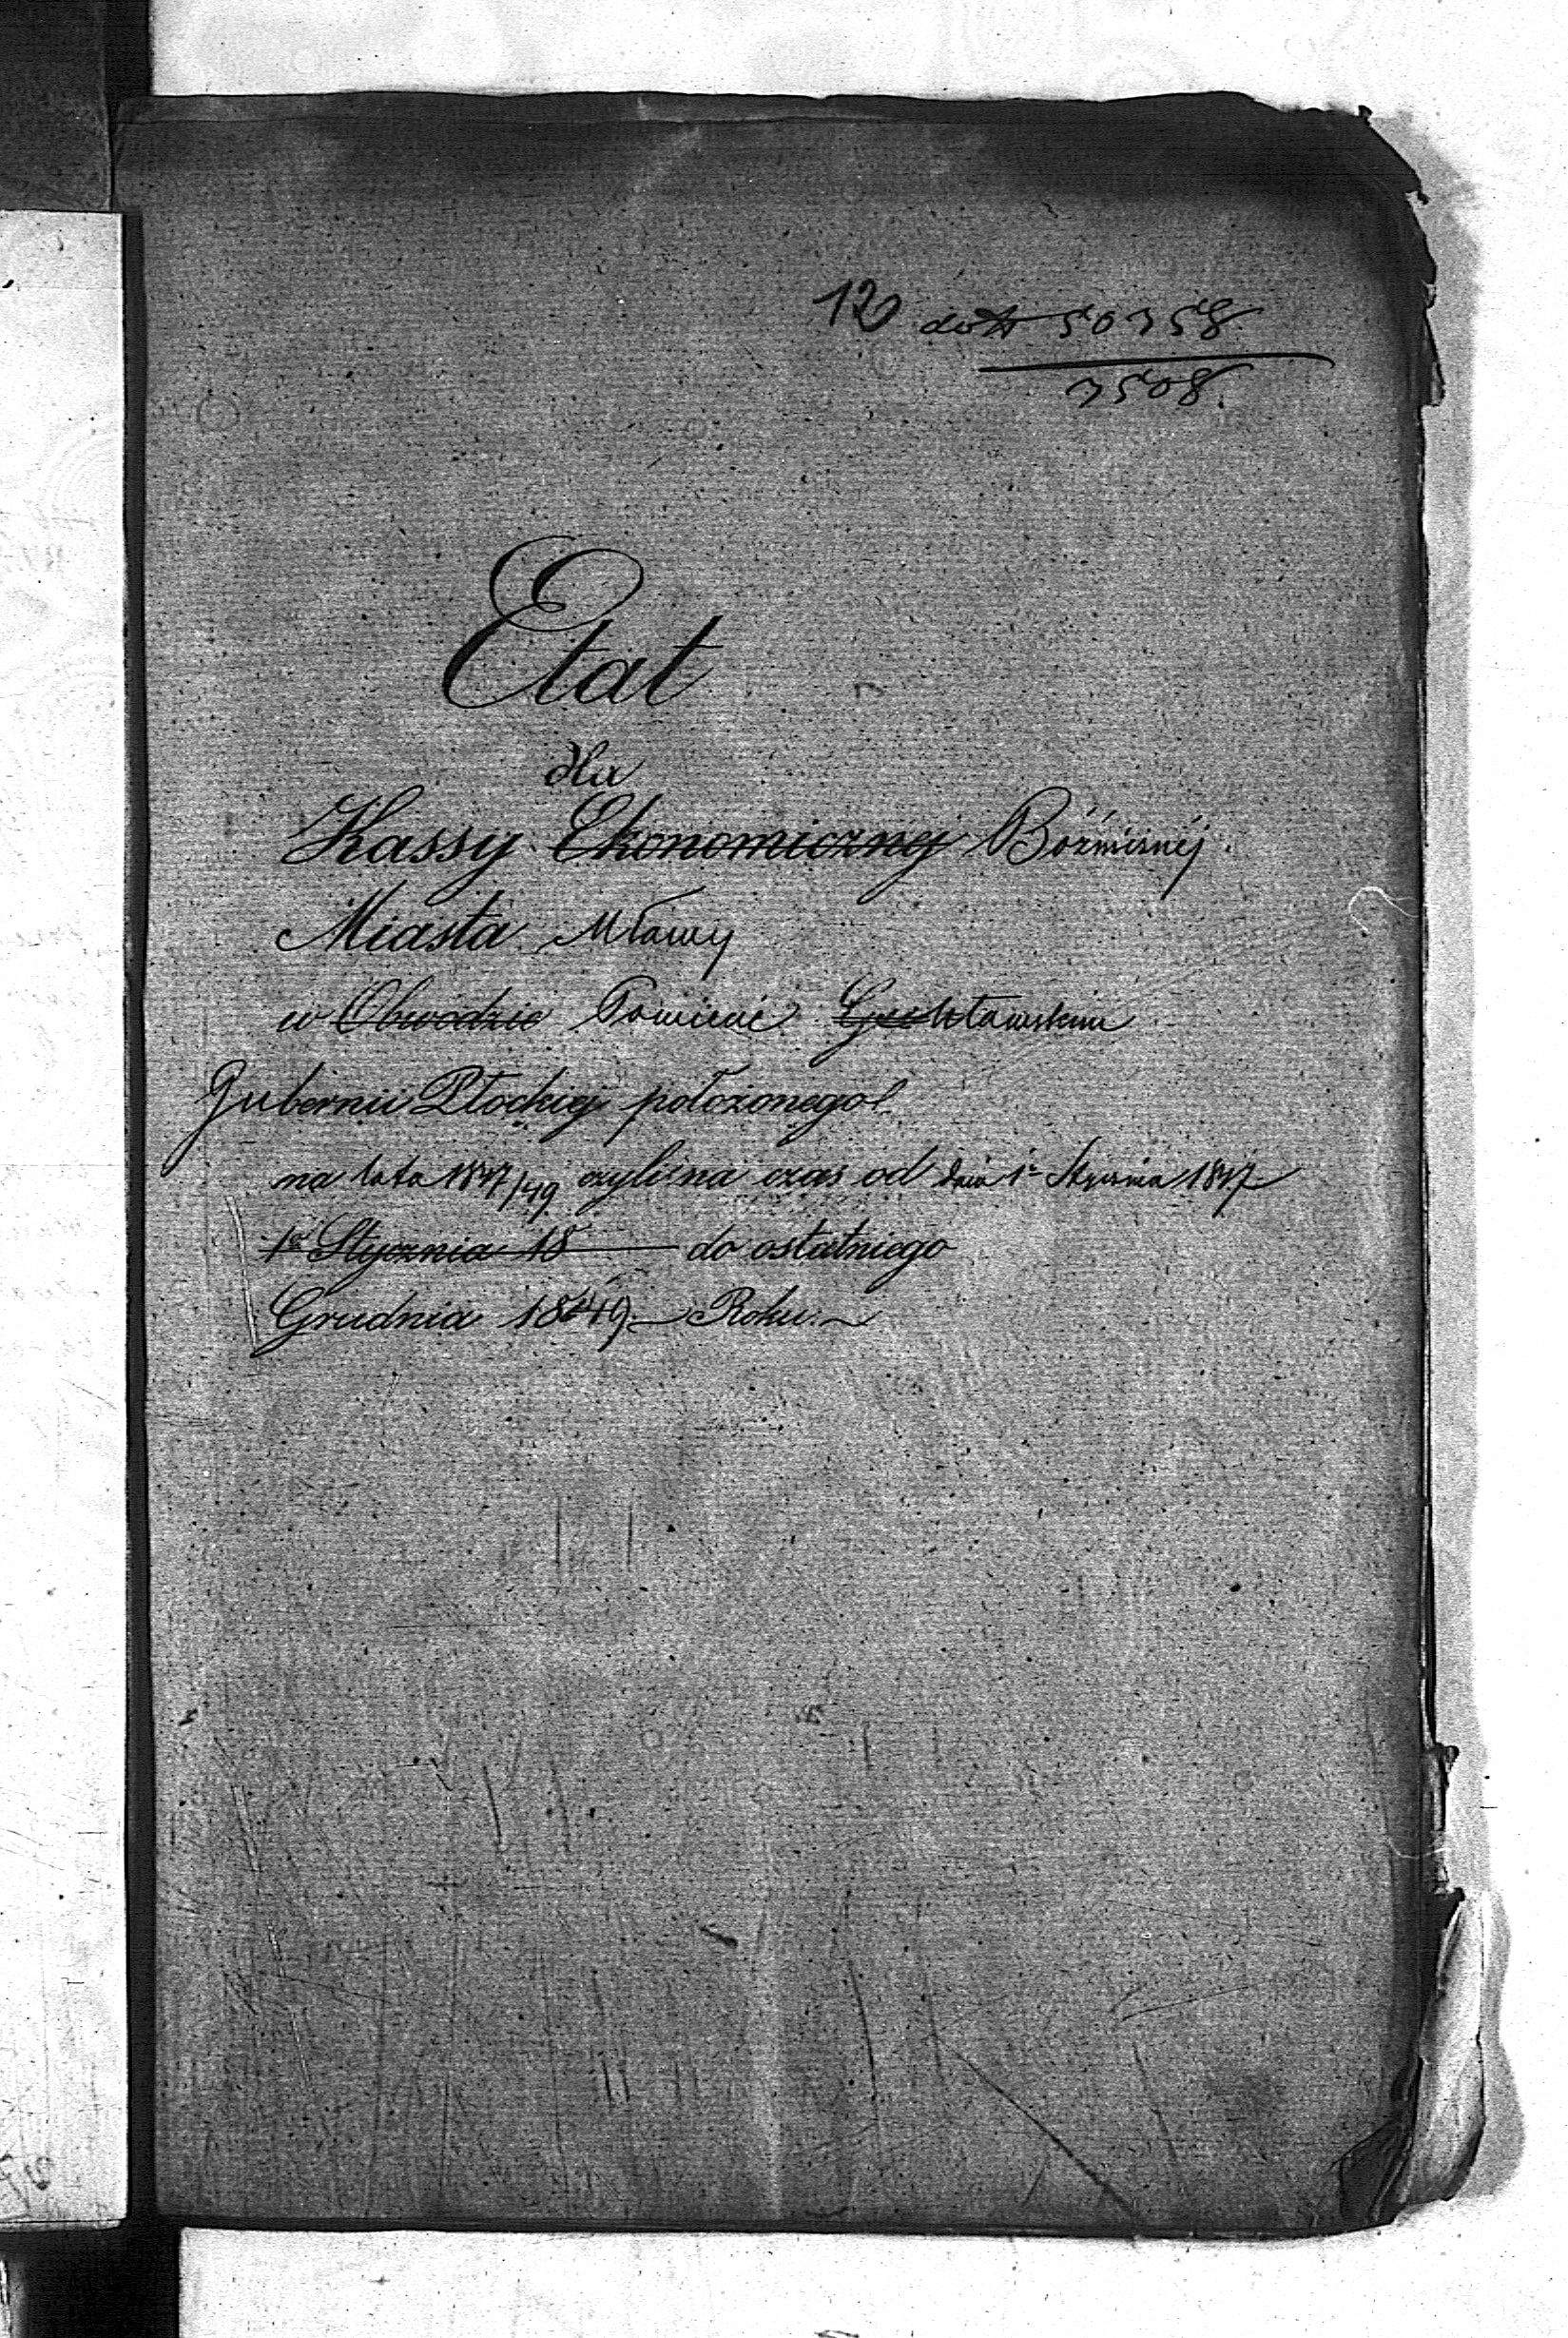 12 do N 50358
3508.
Etat
dla
Kassy Ekonomicznej Bóżnicznéj
Miasta Mławy
w Obwodzie Powiecie Mławskim
Gubernii Płockiej położonego
na lata 1847/49 czyli na czas od dnia 1º Stycznia 1847
1º Stycznia 18 do ostatniego
Grudnia 1849 Roku.